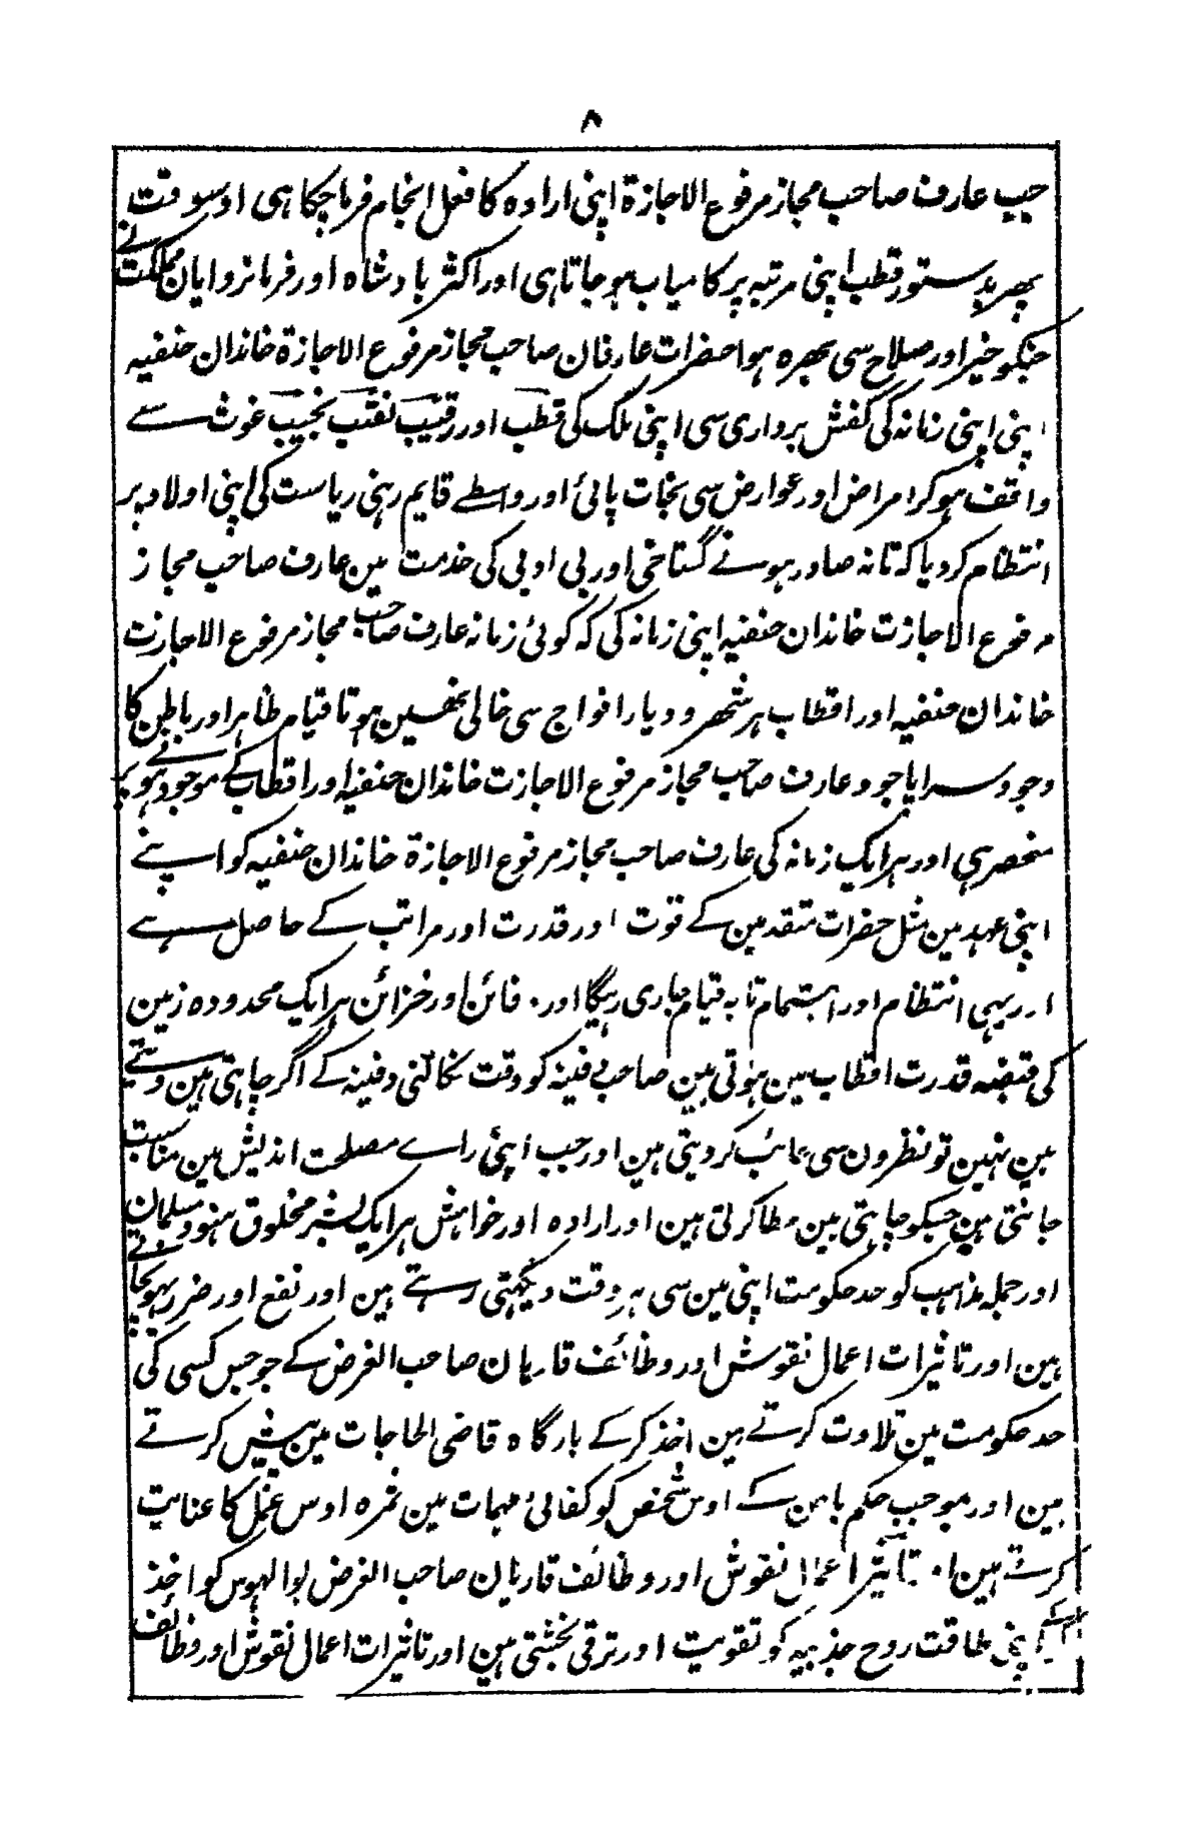 ۸
جب عارف صاحب مجاز مرفوع الاجازة اپنی ارادہ کا فعل انجام فرما چکا ہی اوسوقت
پھر بدستور قطب اپنی مرتبہ پر کامیاب ہو جاتا ہی اور اکثر بادشاہ اور فرمانروایان مملکت نے
جنکو خیر اور صلاح سی بھرہ ہوا حضرات عارفان صاحب مجاز مرفوع الاجازة خاندان حنفیہ
اپنی اپنی زمانہ کی کفش برداری سی اپنی ملک کی قطب اور رقیب نقیب نجیب غوث سے
واقف ہو کر امراض اور عوارض سی نجات پائی اور واسطے قایم رہنی ریاست کی اپنی اولاد پر
انتظام کر دیا کہ تا نہ صادر ہونے گستاخی اور بی ادبی کی خدمت مین عارف صاحب مجاز
مرفوع الاجازت خاندان حنفیہ اپنی زمانہ کی کہ کوئی زمانہ عارف صاحب مجاز مرفوع الاجازت
خاندان حنفیہ اور اقطاب ہر شھر و دیار افواج سی خالی نھین ہوتا قیام ظاہر اور باطن کا
وجود سراپا جود عارف صاحب مجاز مرفوع الاجازت خاندان حنفیہ اور اقطاب کے موجود ہونے پر
منحصر ہی اور ہر ایک زمانہ کی عارف صاحب مجاز مرفوع الاجازة خاندان حنفیہ کو اپنے
اپنی عہد مین مثل حضرات متقدمین کے قوت اور قدرت اور مراتب کے حاصل ہے
اور یہی انتظام اور اہتمام تا بہ قیام جاری رہیگا اور دفائن اور خزائن ہر ایک محدودہ زمین
کی قبضہ قدرت اقطاب مین ہوتی ہین صاحب دفینہ کو وقت نکالنی دفینہ کے اگر چاہتی ہین دیتے
ہین نہین تو نظرون سی غائب کر دیتی ہین اور جب اپنی راے مصلحت اندیش مین مناسب
جانتی ہین جسکو چاہتی ہین عطا کرتی ہین اور ارادہ اور خواہش ہر ایک بشر مخلوق ہنود و مسلمان
اور جملہ مذاہب کو حد حکومت اپنی مین سی ہر وقت دیکھتی رہتے ہین اور نفع اور ضرر پہونچاتے
ہین اور تاثیرات اعمال نقوش اور وظائف قاریان صاحب الغرض کے جو جس کسی کی
حد حکومت مین تلاوت کرتے ہین اخذ کر کے بارگاہ قاضی الحاجات مین پیش کرتے
ہین اور موجب حکم باہمن کے اوس شخص کو کفائی مہمات مین ثمرہ اوس عمل کا عنایت
کرتے ہین تاثیر اعمال نقوش اور وظائف قاریان صاحب الغرض بوالہوس کو اخذ
کر کے اپنی طاقت روح جذبیہ کو تقویت اور ترقی بخشتی ہین اور تاثیرات اعمال نقوش اور وظائف